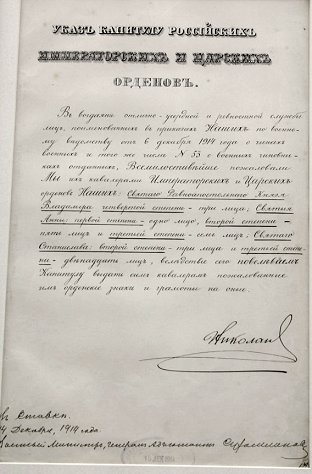 УКАЗЪ КАПИТУЛУ РОССІЙСКИХЪ
ИМПЕРАТОРСКИХЪ И ЦАРСКИХЪ
ОРДЕНОВЪ.
Въ воздаяніе отлично-усердной и ревностной службы
лицъ, поименованныхъ въ приказахъ Нашихъ по воен-
ному вѣдомству отъ 6 декабря 1914 года о чинахъ
военныхъ и того же числа № 55 о военныхъ чиновни-
кахъ отданныхъ, Всемилостивѣйше пожаловали
Мы ихъ кавалерами Императорскихъ и Царскихъ
орденовъ Нашихъ: Святаго Равноапостольнаго Князя
Владиміра: четвертой степени - три лица; Святыя
Анны: первой степени - одно лицо, второй степени -
пять лицъ и третьей степени - семь лицъ; Святаго
Станислава: второй степени - три лица и третьей степе-
ни - двѣнадцать лицъ, вслѣдствіе сего повелѣваемъ
Капитулу выдать симъ кавалерамъ пожалованные
имъ орденскіе знаки и грамоты на оные.
Николай
въ Ставкѣ
Декабря, 1914 года.
Военный Министръ, генералъ-адъютантъ Сухомлиновъ